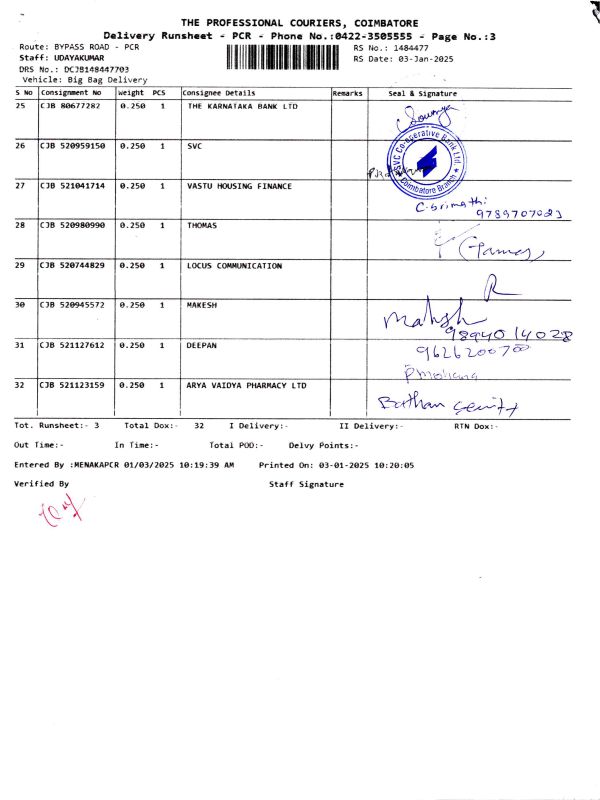 THE PROFESSIONAL COURIERS, COIMBATORE
Delivery Runsheet - PCR - Phone No.:0422-3505555 - Page No.:3
Route: BYPASS ROAD - PCR RS No.: 1484477
Staff: UDAYAKUMAR RS Date: 03-Jan-2025
DRS No.: DCJB148447703
Vehicle: Big Bag Delivery
S No Consignment No Weight PCS Consignee Details Remarks Seal & Signature
25 CJB 80677282 0.250 1 THE KARNATAKA BANK LTD
26 CJB 520959150 0.250 1 SVC
SVC Co-operative Bank Ltd.
Coimbatore Branch
27 CJB 521041714 0.250 1 VASTU HOUSING FINANCE
C-Srimathi
9789707023
28 CJB 520980990 0.250 1 THOMAS
29 CJB 520744829 0.250 1 LOCUS COMMUNICATION
R
30 CJB 520945572 0.250 1 MAKESH
Mahesh
9894014028
31 CJB 521127612 0.250 1 DEEPAN
9626200700
P Mohana
32 CJB 521123159 0.250 1 ARYA VAIDYA PHARMACY LTD
Tot. Runsheet:- 3 Total Dox:- 32 I Delivery:- II Delivery:- RTN Dox:-
Out Time:- In Time:- Total POD:- Delvy Points:-
Entered By :MENAKAPCR 01/03/2025 10:19:39 AM Printed On: 03-01-2025 10:20:05
Verified By Staff Signature